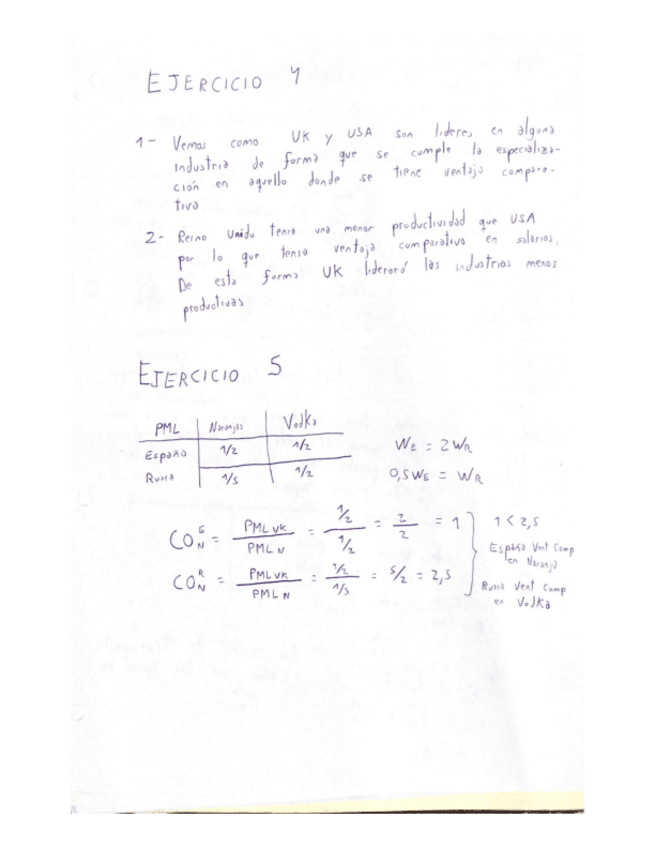 EJERCICIO 4
1- Vemos como UK y USA son líderes en alguna
industria de forma que se cumple la especializa-
ción en aquello donde se tiene ventaja compara-
tiva
2- Reino Unido tenía una menor productividad que USA
por lo que tenía ventaja comparativa en salarios.
De esta forma UK liderará las industrias menos
productivas
EJERCICIO 5
PML Naranjas Vodka
España 1/2 1/2
Rusia 1/5 1/2
WE = 2WR
0,5WE = WR
CO_N^E = PML VK / PML N = 1/2 / 1/2 = 2/2 = 1
1 < 2,5
España Vent Comp
en Naranja
CO_N^R = PML VK / PML N = 1/2 / 1/5 = 5/2 = 2,5
Rusia Vent Comp
en Vodka